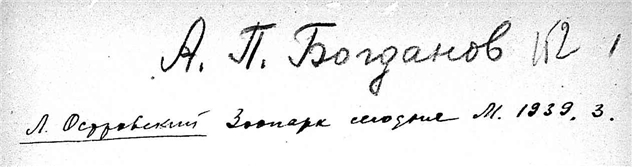 А. П. Богданов 152
Л. Островский Зоопарк сегодня М. 1939. 3.